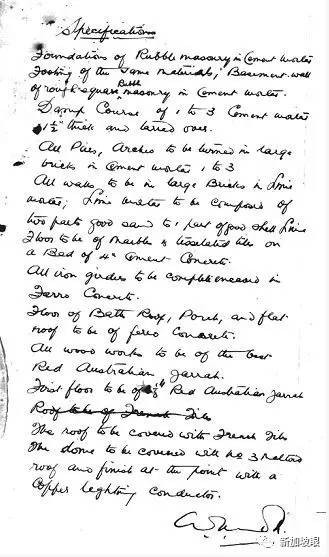 Specifications
Foundations of Rubble masonry in Cement mortar
Footing of the same materials; Basement wall
of rough square Rubble masonry in Cement mortar.
Damp Course of 1 to 3 Cement mortar
1½" thick and tarred over.
All Piers, Arches to be turned in large
bricks in Cement mortar 1 to 3
All walls to be in large Bricks in Lime
mortar; Lime mortar to be composed of
two parts good sand to 1 part of good shell Lime
Floor to be of Marble & teselated tiles on
a Bed of 4" Cement Concrete.
All iron girders to be complete encased in
Ferro Concrete.
Floor of Bath Room, Porch, and flat
roof to be of ferro Concrete.
All wood works to be of the best
Red Australian Jarrah.
First floor to be of Red Australian Jarrah
Roof to be of French Tiles
The roof to be covered with French Tiles
The dome to be covered with No 3 malthoid
roof and finish at the point with a
Copper lighting conductor.
新加坡眼